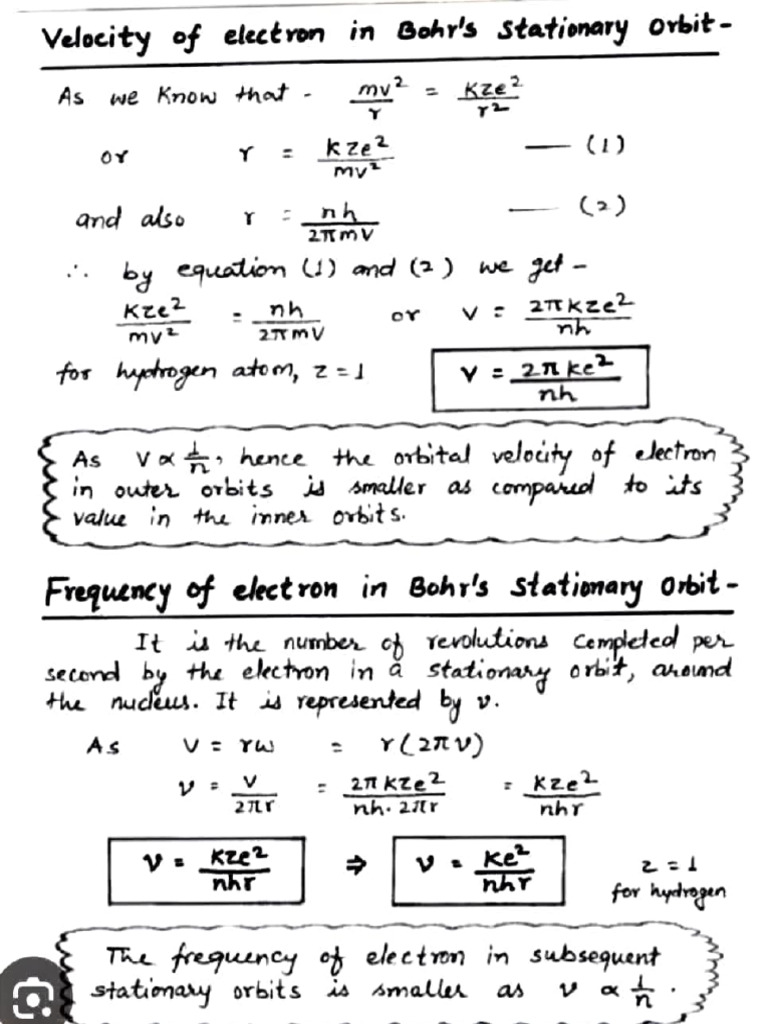 Velocity of electron in Bohr's Stationary Orbit-
As we know that - mv²/r = KZe²/r²
or r = KZe²/mv² — (1)
and also r = nh/2πmv — (2)
∴ by equation (1) and (2) we get -
KZe²/mv² = nh/2πmv or v = 2πKZe²/nh
for hydrogen atom, z = 1 v = 2πke²/nh
As v ∝ 1/n, hence the orbital velocity of electron
in outer orbits is smaller as compared to its
value in the inner orbits.
Frequency of electron in Bohr's Stationary Orbit-
It is the number of revolutions completed per
second by the electron in a stationary orbit, around
the nucleus. It is represented by ν.
As v = rω = r(2πν)
ν = v/2πr = 2πKZe²/nh·2πr = KZe²/nhr
ν = KZe²/nhr ⇒ ν = Ke²/nhr z = 1
for hydrogen
The frequency of electron in subsequent
stationary orbits is smaller as ν ∝ 1/n.